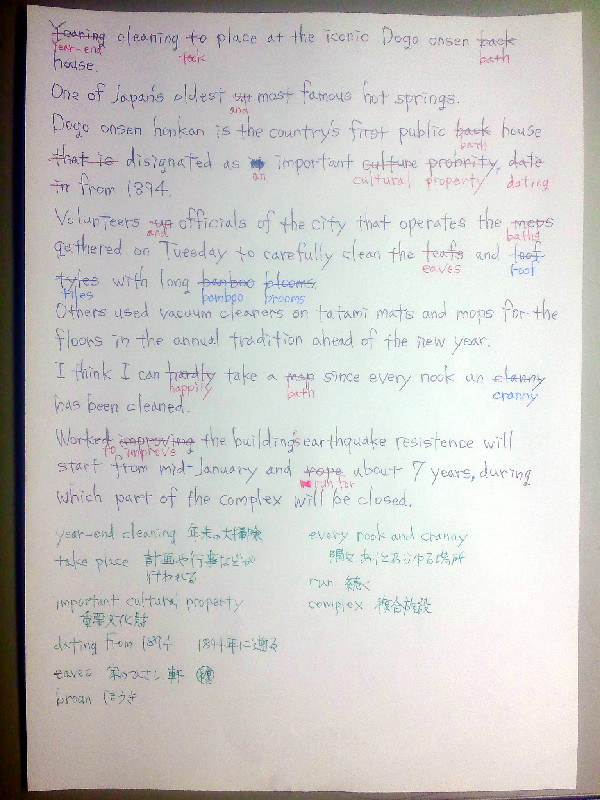 Tearing cleaning to place at the iconic Dogo onsen back
year-end took bath
house.
One of Japan's oldest un most famous hot springs.
and
Dogo onsen honkan is the country's first public back house
bath
that is disignated as important culture probrity, date
an cultural property dating
in from 1894.
Volunteers un officials of the city that operates the mops
and baths
gathered on Tuesday to carefully clean the teafs and loof
eaves roof
tyles with long banboo plooms.
tiles bamboo brooms
Others used vacuum cleaners on tatami mats and mops for the
floors in the annual tradition ahead of the new year.
I think I can hardly take a map since every nook un clanny
happily bath cranny
has been cleaned.
Worked improving the building's earthquake resistence will
to improve
start from mid-January and rope about 7 years, during
run for
which part of the complex will be closed.
year-end cleaning 年末の大掃除 every nook and cranny
take place 計画や行事などが 隅々 ありとあらゆる場所
行われる run 続く
important cultural property complex 複合施設
重要文化財
dating from 1894 1894年に遡る
eaves 家のひさし 軒
broom ほうき